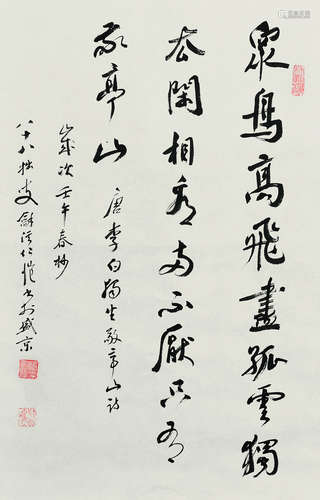 眾鳥高飛盡孤雲獨
去閑相看兩不厭只有
敬亭山
唐李白獨坐敬亭山詩
歲次壬午春杪
八十八叟龢溪仁愷書於盛京